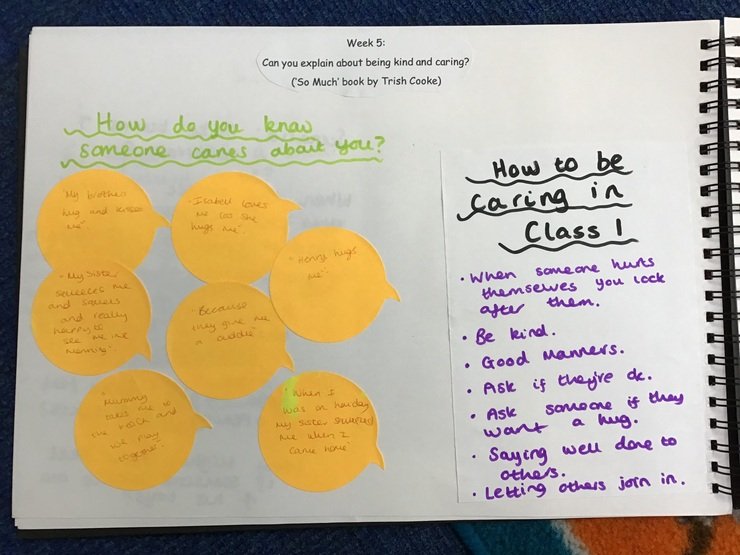 Week 5:
Can you explain about being kind and caring?
('So Much' book by Trish Cooke)
How do you know
someone cares about you?
"My brother
hug and kisses
me"
"Isabell loves
me cos she
hugs me"
"Henry hugs
me"
"My Sister
squeezes me
and
and really
happy to
see me in
morning"
"Because
they give me
a cuddle"
"Mummy
takes me to
the beach and
we play
together"
"When I
was on holiday
my sister squeezed
me when I
came home"
How to be
caring in
Class 1
• When someone hurts
themselves you look
after them.
• Be kind.
• Good manners.
• Ask if they're ok.
• Ask someone if they
want a hug.
• Saying well done to
others.
• Letting others join in.